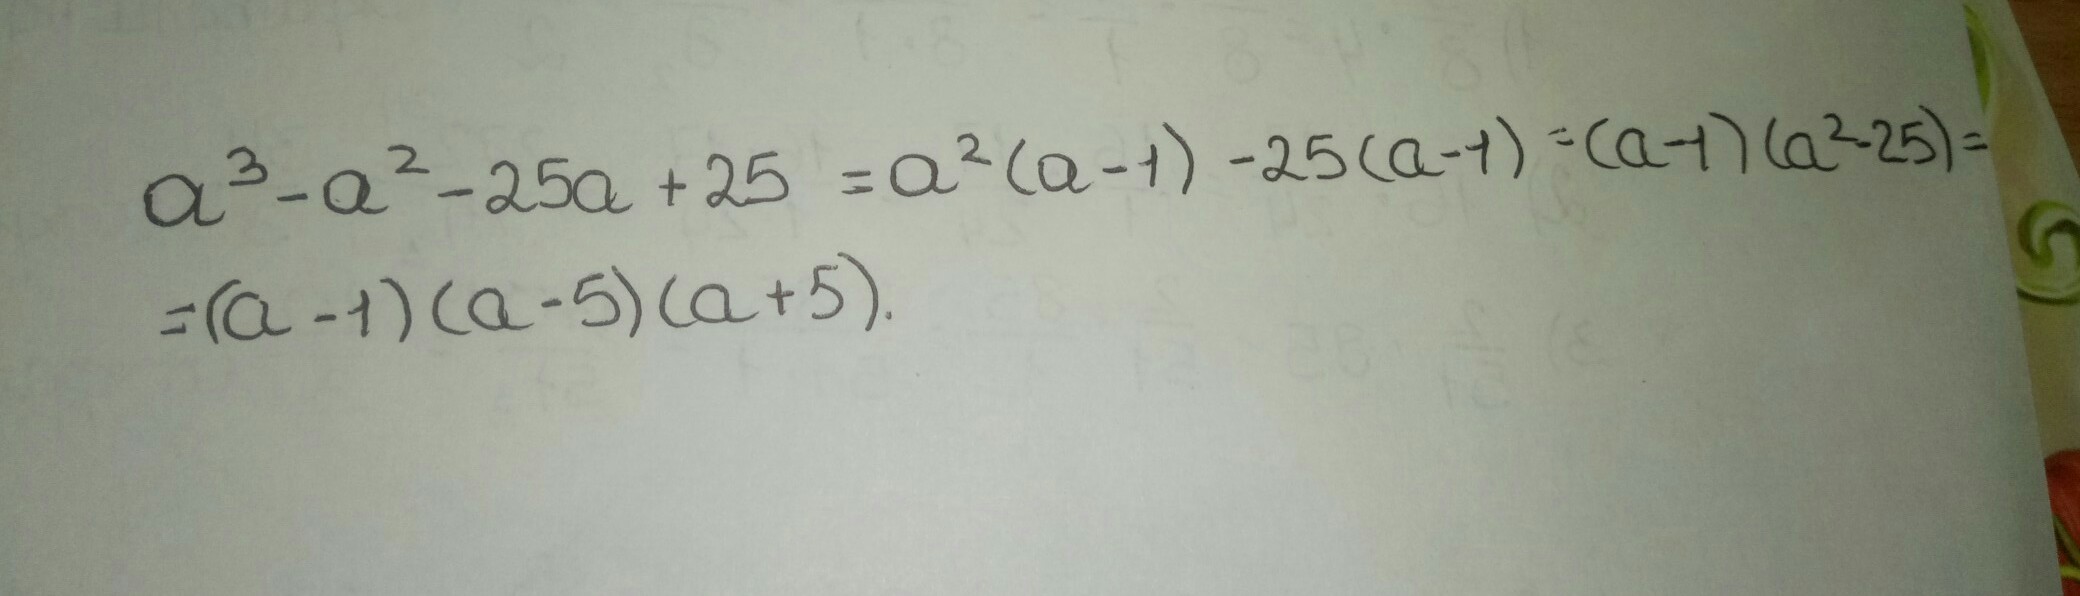 a³-a²-25a+25 =a²(a-1)-25(a-1)=(a-1)(a²-25)=
=(a-1)(a-5)(a+5).